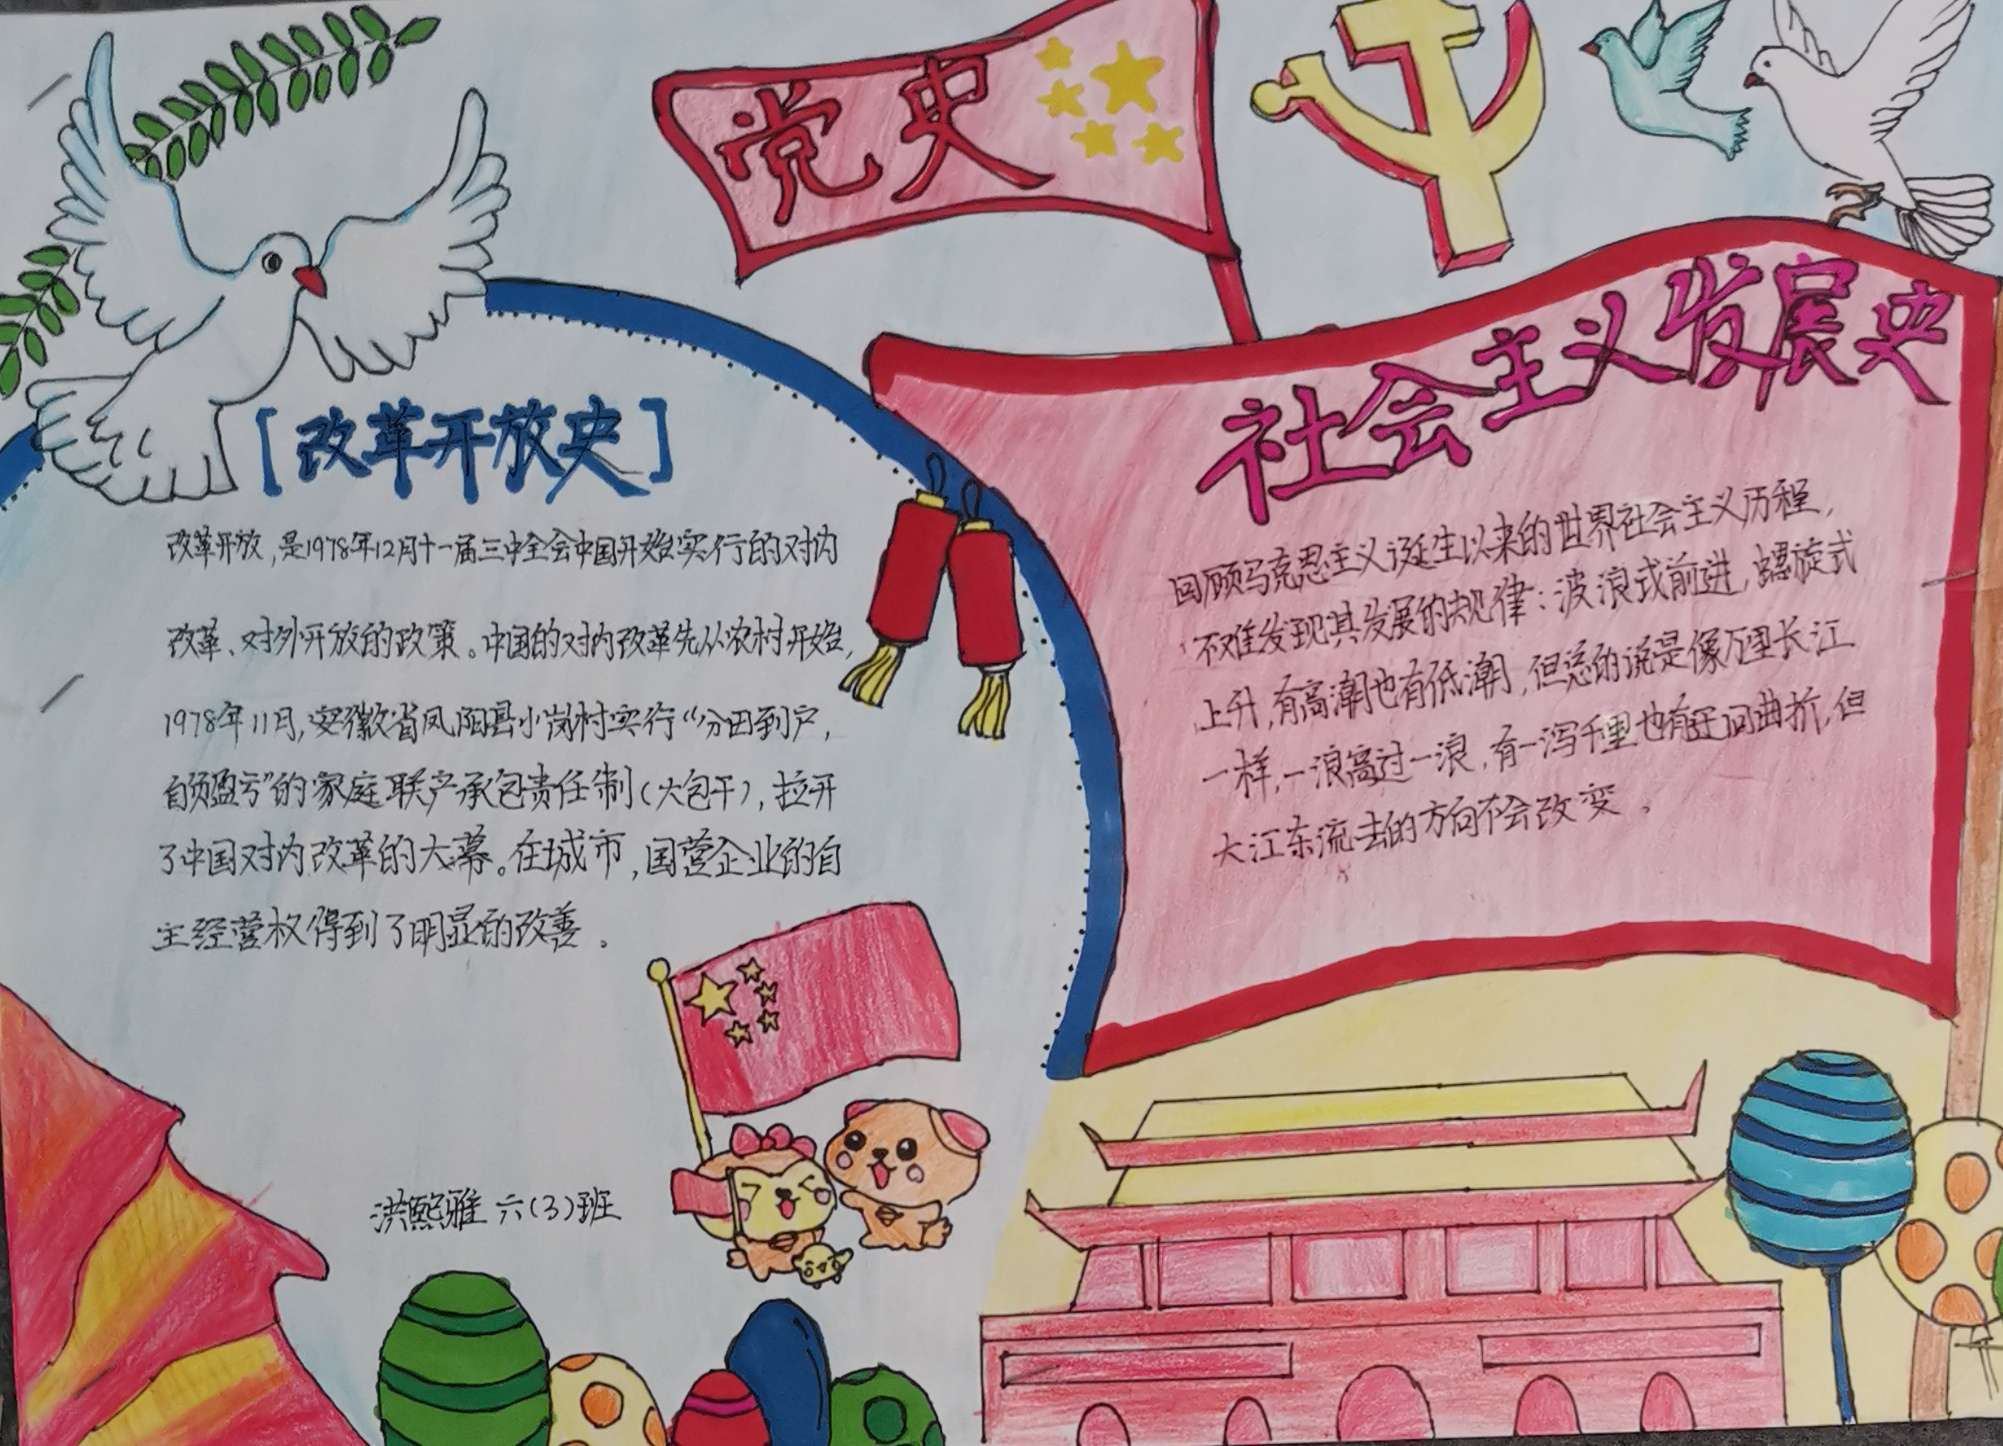 党史
[改革开放史]
改革开放,是1978年12月十一届三中全会中国开始实行的对内
改革、对外开放的政策。中国的对内改革先从农村开始,
1978年11月,安徽省凤阳县小岗村实行“分田到户,
自负盈亏”的家庭联产承包责任制(大包干),拉开
了中国对内改革的大幕。在城市,国营企业的自
主经营权得到了明显的改善。
洪熙雅 六(3)班
社会主义发展史
回顾马克思主义诞生以来的世界社会主义历程,
不难发现其发展的规律:波浪式前进,螺旋式
上升,有高潮也有低潮,但总的说是像万里长江
一样,一浪高过一浪,有一泻千里也有迂回曲折,但
大江东流去的方向不会改变。